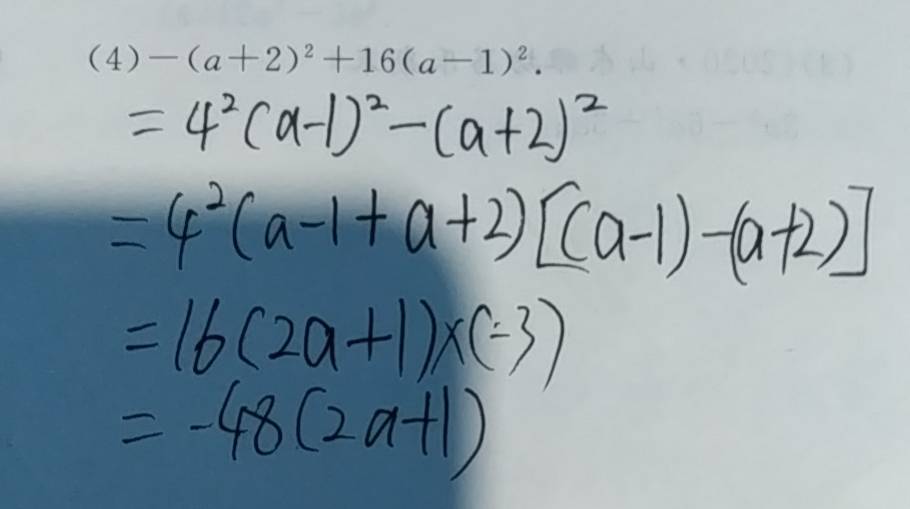 (4)-(a+2)²+16(a-1)².
=4²(a-1)²-(a+2)²
=4²(a-1+a+2)[(a-1)-(a+2)]
=16(2a+1)×(-3)
=-48(2a+1)